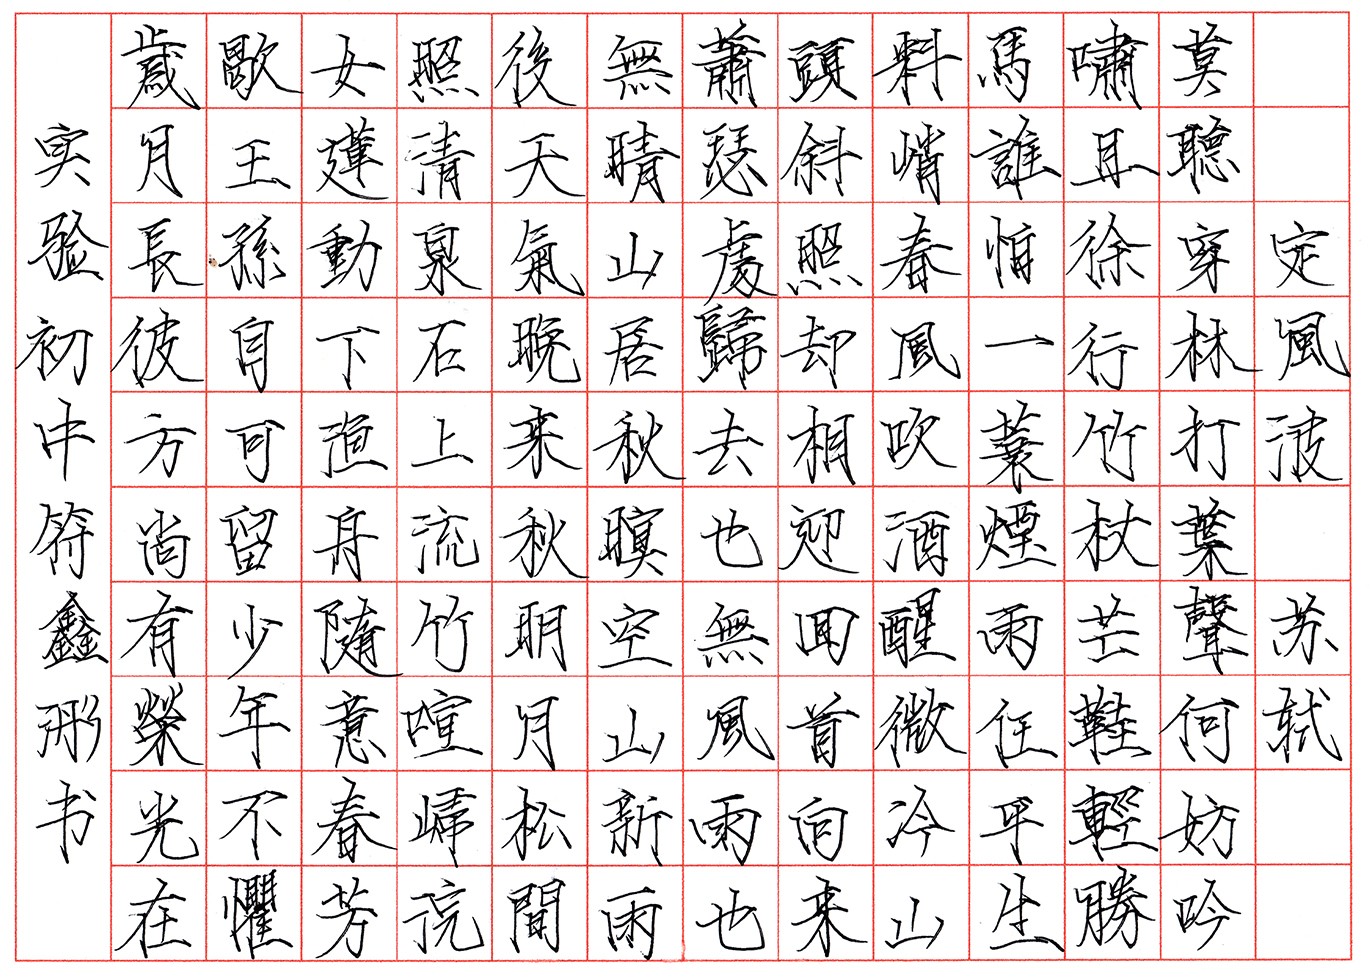 定風波 苏轼
莫聽穿林打葉聲何妨吟
嘯且徐行竹杖芒鞋輕勝
馬誰怕一蓑煙雨任平生
料峭春風吹酒醒微冷山
頭斜照却相迎回首向来
蕭瑟處歸去也無風雨也
無晴山居秋暝空山新雨
後天氣晚来秋明月松間
照清泉石上流竹喧歸浣
女蓮動下漁舟隨意春芳
歇王孫自可留少年不懼
歲月長彼方尚有榮光在
实验初中符鑫彤书